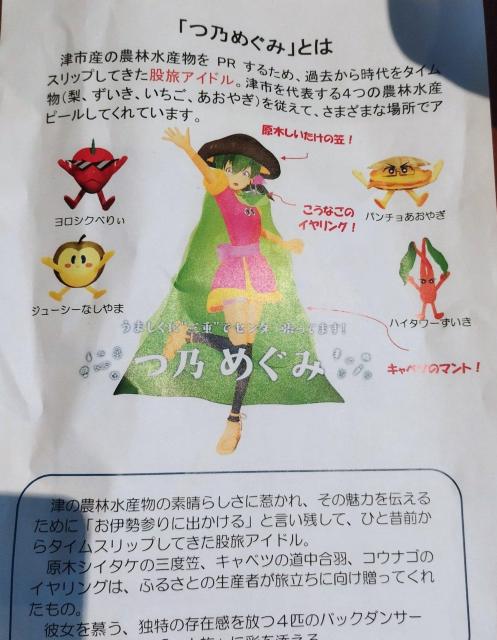 「つ乃めぐみ」とは
津市産の農林水産物を PR するため、過去から時代をタイム
スリップしてきた股旅アイドル。津市を代表する4つの農林水産
物(梨、ずいき、いちご、あおやぎ)を従えて、さまざまな場所でア
ピールしてくれています。
原木しいたけの笠！
ヨロシクべりぃ
こうなごの
イヤリング！
バンチョあおやぎ
ジューシーなしやま
ハイタワーずいき
うましくに"三重"でセンター張ってます！
つ乃めぐみ
キャベツのマント！
津の農林水産物の素晴らしさに惹かれ、その魅力を伝える
ために「お伊勢参りに出かける」と言い残して、ひと昔前か
らタイムスリップしてきた股旅アイドル。
原木シイタケの三度笠、キャベツの道中合羽、コウナゴの
イヤリングは、ふるさとの生産者が旅立ちに向け贈ってくれ
たもの。
彼女を慕う、独特の存在感を放つ４匹のバックダンサー